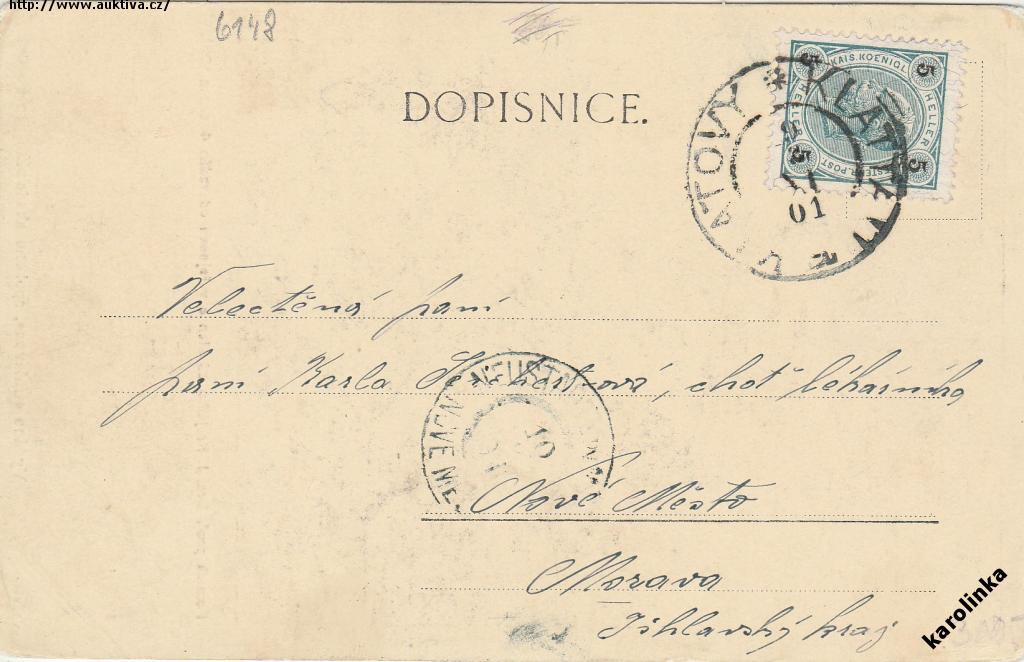 http://www.auktiva.cz/
6148
DOPISNICE.
KAIS. KOENIGL.
5 5
HELLER HELLER
5 5
POST
KLATTAU
KLATOVY
01
Velectěná paní
paní Karla choť lékárníka
NEUSTADTL
10
Nové Město
Morava
Jihlavský kraj
karolinka